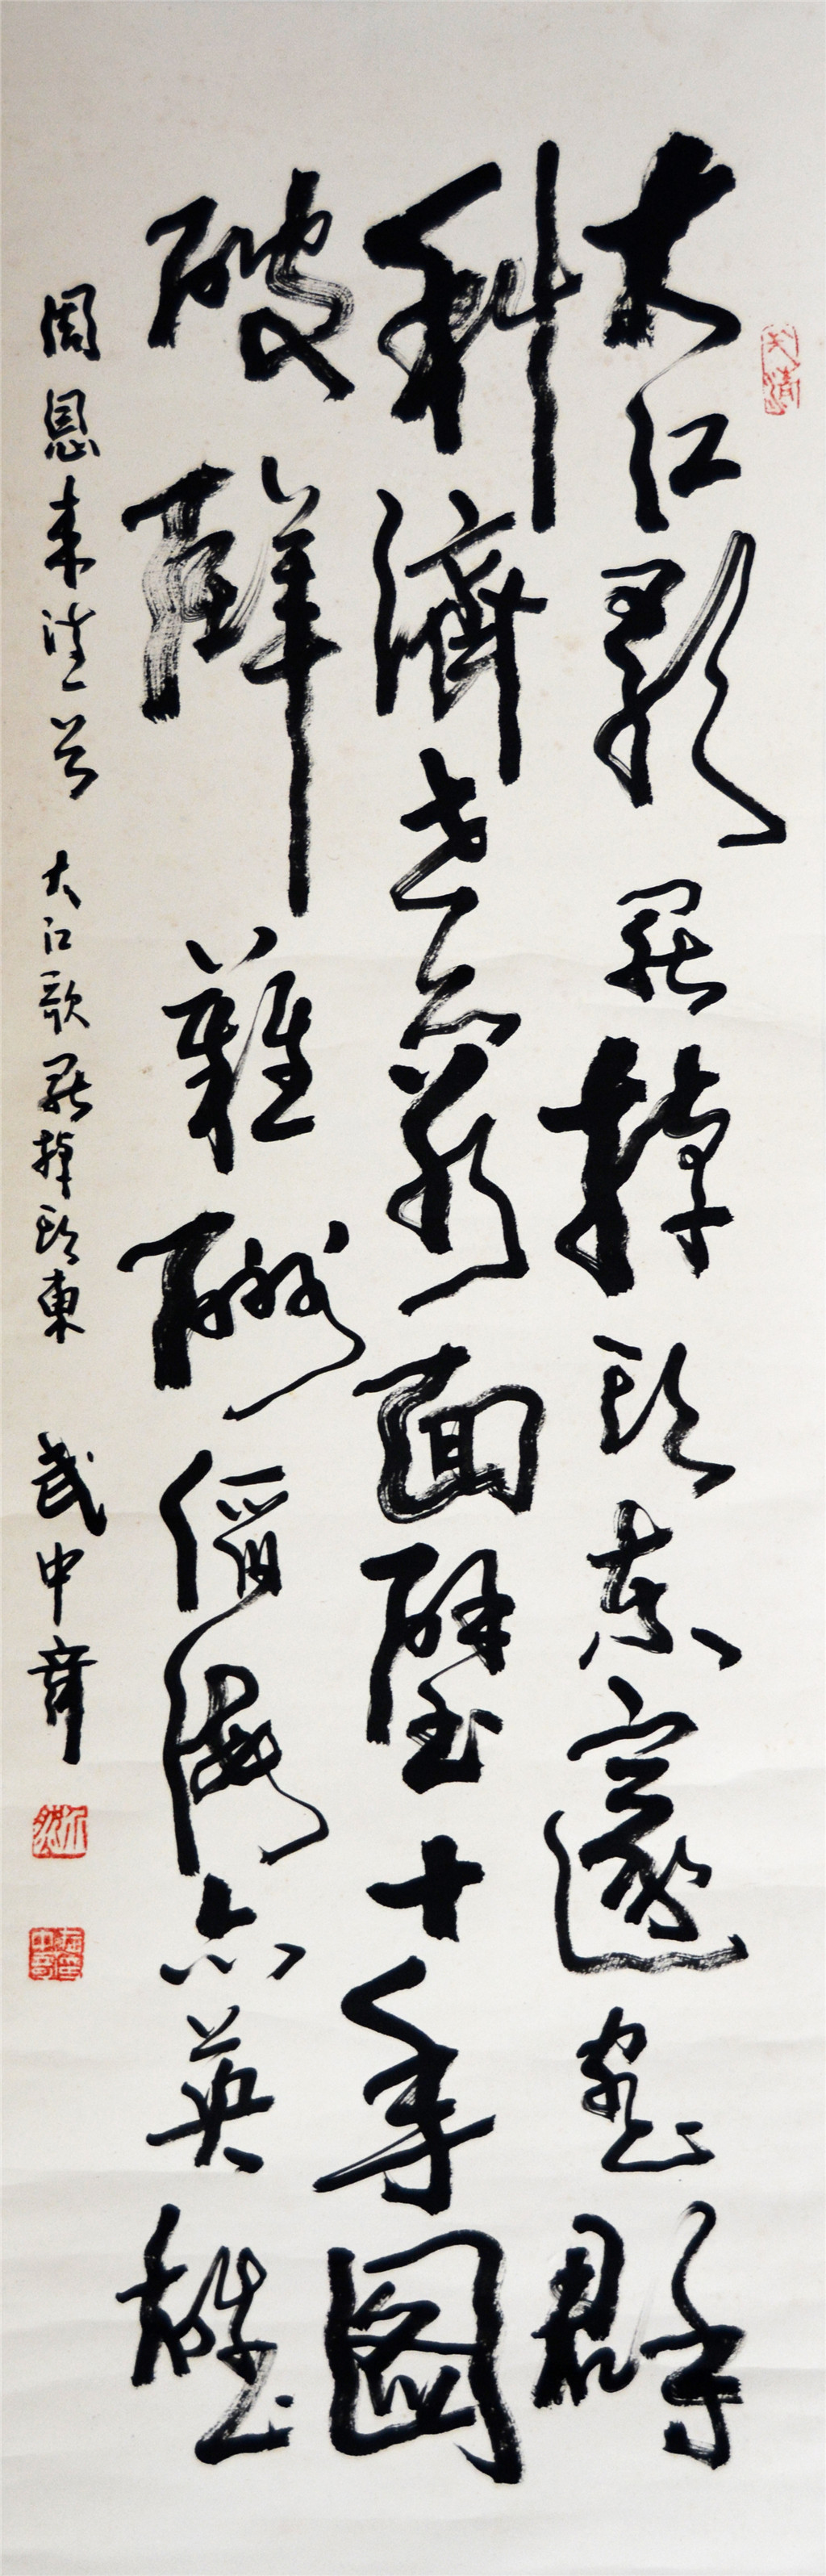 大江歌罷掉頭東邃密群
科濟世窮面壁十年圖
破壁難酬蹈海亦英雄
周恩來詩一首 大江歌罷掉頭東 武中奇